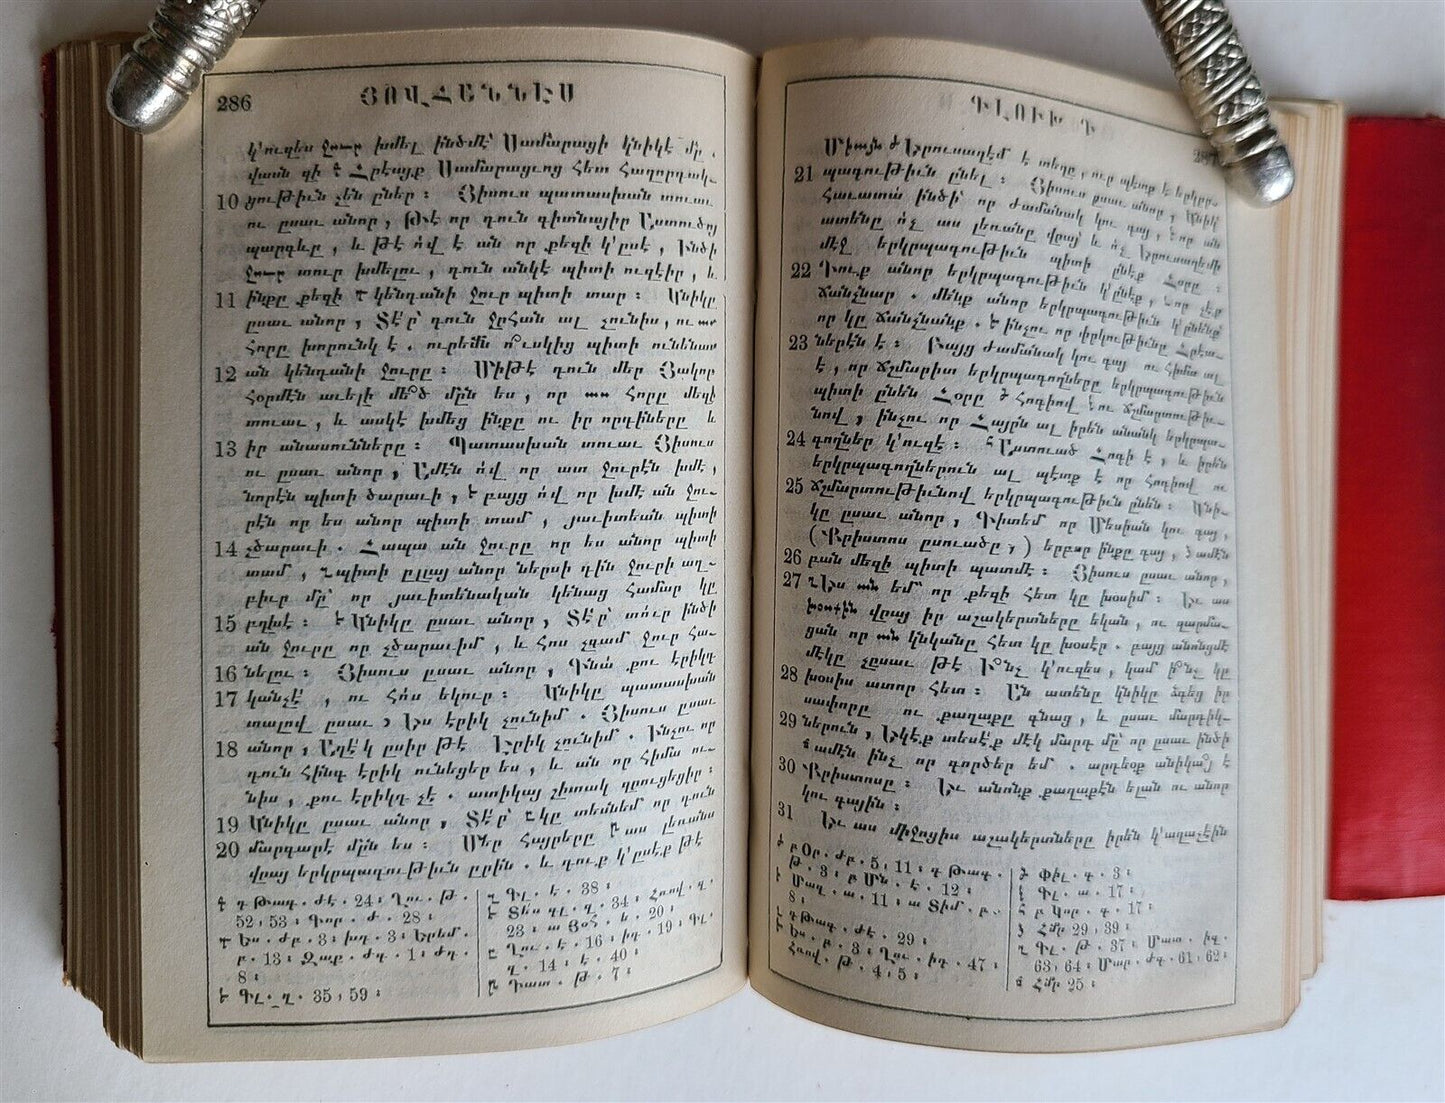 286
ՅՈՎՀԱՆՆԷՍ
կ՚ուզես ջուր խմել ինձմէ՝ Սամարացի կնիկէ մը.
վասն զի Հրէայք Սամարացւոց հետ հաղորդակ–
10 ցութիւն չեն ըներ։ Յիսուս պատասխան տուաւ
ու ըսաւ անոր, Թէ որ դուն գիտնայիր Աստուծոյ
պարգևը, և թէ ո՛վ է ան որ քեզի կ՚ըսէ, Ինծի
ջուր տուր խմելու, դուն անկէ պիտի ուզէիր, և
11 ինքը քեզի կենդանի ջուր պիտի տար։ Կնիկը
ըսաւ անոր, Տէ՛ր՝ դուն ջրհան ալ չունիս, ու աս
հորը խորունկ է. ուրեմն ո՞ւսկից պիտի ունենաս
12 ան կենդանի ջուրը։ Միթէ դուն մեր Յակոբ
հօրմէն աւելի մե՞ծ մըն ես, որ աս հորը մեզի
տուաւ, և ասկէ խմեց ինքը ու իր որդիները և
13 իր անասունները։ Պատասխան տուաւ Յիսուս
ու ըսաւ անոր, Ամէն ո՛վ որ ատ ջուրէն խմէ,
նորէն պիտի ծարաւի, բայց ո՛վ որ խմէ ան ջու–
րէն որ ես անոր պիտի տամ, յաւիտեան պիտի
14 չծարաւի. Հապա ան ջուրը որ ես անոր պիտի
տամ, պիտի ըլլայ անոր ներսի դին ջուրի աղ–
բիւր մը՝ որ յաւիտենական կենաց համար կը
15 բղխէ։ Կնիկը ըսաւ անոր, Տէ՛ր՝ տո՛ւր ինծի
ան ջուրը որ չծարաւիմ, և հոս չգամ ջուր հա–
16 նելու։ Յիսուս ըսաւ անոր, Գնա՛ քու էրիկդ
17 կանչէ՛, ու հո՛ս եկուր։ Կնիկը պատասխան
տալով ըսաւ, Ես էրիկ չունիմ. Յիսուս ըսաւ
18 անոր, Աղէ՛կ ըսիր թէ Էրիկ չունիմ. Ինչու որ
դուն հինգ էրիկ ունեցեր ես, և ան որ հիմա ու–
նիս, քու էրիկդ չէ. ատիկայ շիտակ զրուցեցիր։
19 Կնիկը ըսաւ անոր, Տէ՛ր՝ կը տեսնեմ որ դուն
20 մարգարէ մըն ես։ Մեր հայրերը աս լեռանս
վրայ երկրպագութիւն ըրին. և դուք կ՚ըսէք թէ
52, 53։ Գոր. ժ. 28։
բ. 13։ Զաք. ժդ. 1։ ժդ.
8։
Գլ. դ. 35, 59։
Գլ. է. 38։
Տես գլ. դ. 34։ Հռով. դ.
23։ ա Յօհ. ե. 20։
Ղու. է. 16։ իդ. 19։ Գլ.
դ. 14։ է. 40։
Դատ. թ. 7։
ԳԼՈՒԽ Դ
Միայն Երուսաղէմ է տեղը, ուր պէտք է երկրը–
21 պագութիւն ընել։ Յիսուս ըսաւ անոր, Կնի՛կ՝
հաւատա՛ ինծի՝ որ ժամանակ կու գայ, որ ան
ատենը ո՛չ աս լեռանը վրայ՝ և ո՛չ Երուսաղէմի
մէջ երկրպագութիւն պիտի ընէք Հօրը։
22 Դուք անոր երկրպագութիւն կ՚ընէք, որ չէք
ճանչնար. մենք անոր երկրպագութիւն կ՚ընենք՝
որ կը ճանչնանք. ինչու որ փրկութիւնը Հրէա–
23 ներէն է։ Բայց ժամանակ կու գայ ու հիմա ալ
է, որ ճշմարիտ երկրպագողները երկրպագութիւն
պիտի ընեն Հօրը հոգիով ու ճշմարտութիւ–
նով, ինչու որ Հայրն ալ իրեն անանկ երկրպա–
24 գողներ կ՚ուզէ։ Աստուած Հոգի է, և իրեն
երկրպագողներուն ալ պէտք է որ հոգիով ու
25 ճշմարտութիւնով երկրպագութիւն ընեն։ Կնի–
կը ըսաւ անոր, Գիտեմ որ Մեսիան կու գայ,
(Քրիստոս ըսուածը,) երբոր ինքը գայ, ամէն
26 բան մեզի պիտի պատմէ։ Յիսուս ըսաւ անոր,
27 Ես ան եմ՝ որ քեզի հետ կը խօսիմ։ Եւ աս
խօսքին վրայ իր աշակերտները եկան, ու զարմա–
ցան որ ան կնկանը հետ կը խօսէր. բայց անոնցմէ
մէկը չըսաւ թէ Ի՞նչ կ՚ուզես, կամ ի՞նչ կը
28 խօսիս ատոր հետ։ Ան ատենը կնիկը ձգեց իր
սափորը ու քաղաքը գնաց, և ըսաւ մարդիկ–
29 ներուն, Եկէք տեսէ՛ք մէկ մարդ մը՝ որ ըսաւ ինծի
ամէն ինչ որ գործեր եմ. արդեօք անիկա՞յ է
30 Քրիստոսը։ Եւ անոնք քաղաքէն ելան ու անոր
կու գային։
31 Եւ աս միջոցիս աշակերտները իրեն կ՚աղաչէին
բ Օր. ժբ. 5, 11։ գ Թագ.
թ. 3։ բ Մն. է. 12։
Մաղ. ա. 11։ ա Տիմ. բ.
8։
դ Թագ. ժէ. 29։
Ես. բ. 3։ Ղու. իդ. 47։
Հռով. թ. 4, 5։
Փիլ. գ. 3։
Գլ. ա. 17։
բ Կոր. գ. 17։
Հմր 29, 39։
Գլ. թ. 37։ Մատ. իզ.
63, 64։ Մար. ժդ. 61, 62։
Հմր 25։